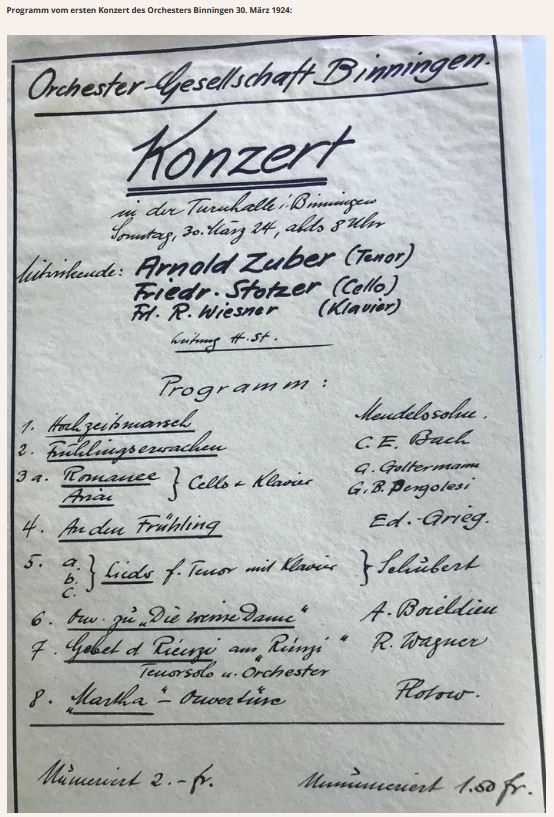 Programm vom ersten Konzert des Orchesters Binningen 30. März 1924:
Orchester-Gesellschaft Binningen.
Konzert
in der Turnhalle i. Binningen
Sonntag, 30. März 24, abds 8 Uhr
Mitwirkende: Arnold Zuber (Tenor)
Friedr. Stotzer (Cello)
Frl. R. Wiesner (Klavier)
Leitung H. St.
Programm:
1. Hochzeitsmarsch Mendelssohn.
2. Frühlingserwachen C. E. Bach
3 a. Romance } Cello + Klavier G. Goltermann
Aria G. B. Pergolesi
4. An den Frühling Ed. Grieg.
5. a. b. c. } Lieder f. Tenor mit Klavier } Schubert
6. Ouv. zu „Die weisse Dame" A. Boieldieu
7. Gebet d Rienzi aus „Rienzi" R. Wagner
Tenorsolo u. Orchester
8. „Martha"- Ouvertüre Flotow.
Numeriert 2.- fr. Unnumeriert 1.50 fr.